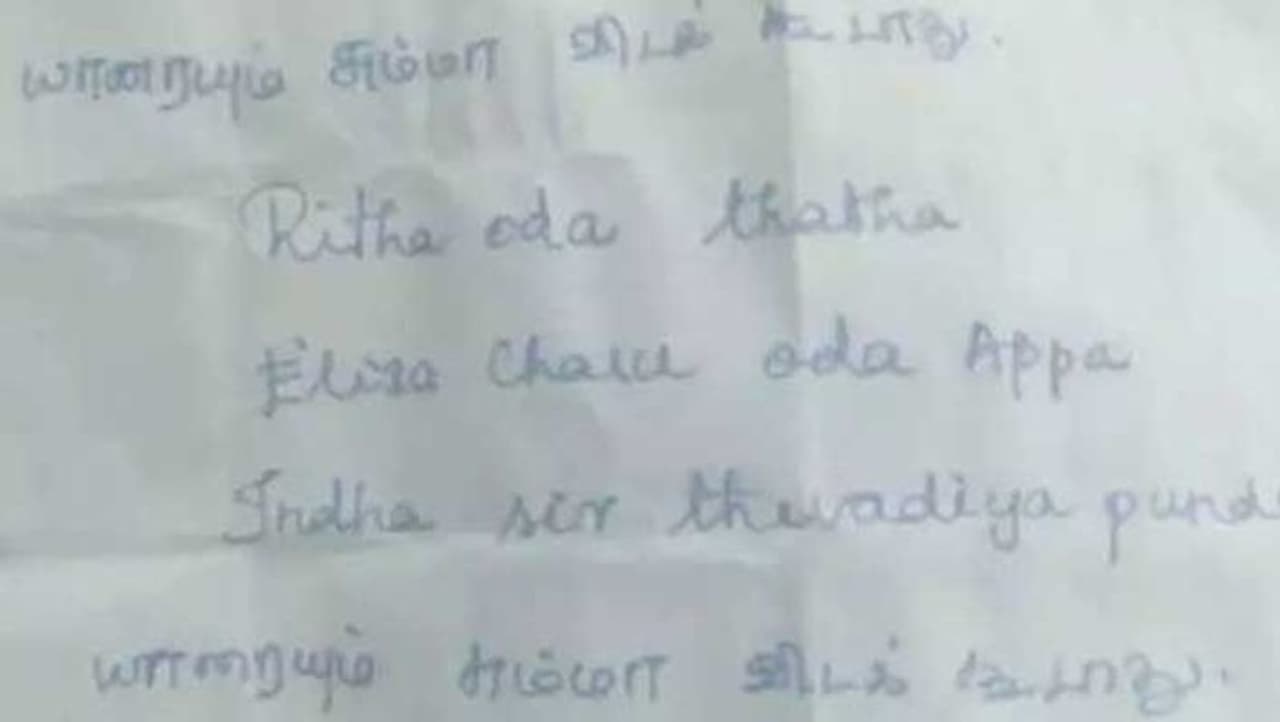 யாரையும் சும்மா விடக் கூடாது.
Ritha oda thatha
Eliza Chalu oda Appa
Indha sir thevadiya pund
யாரையும் சும்மா விடக் கூடாது.